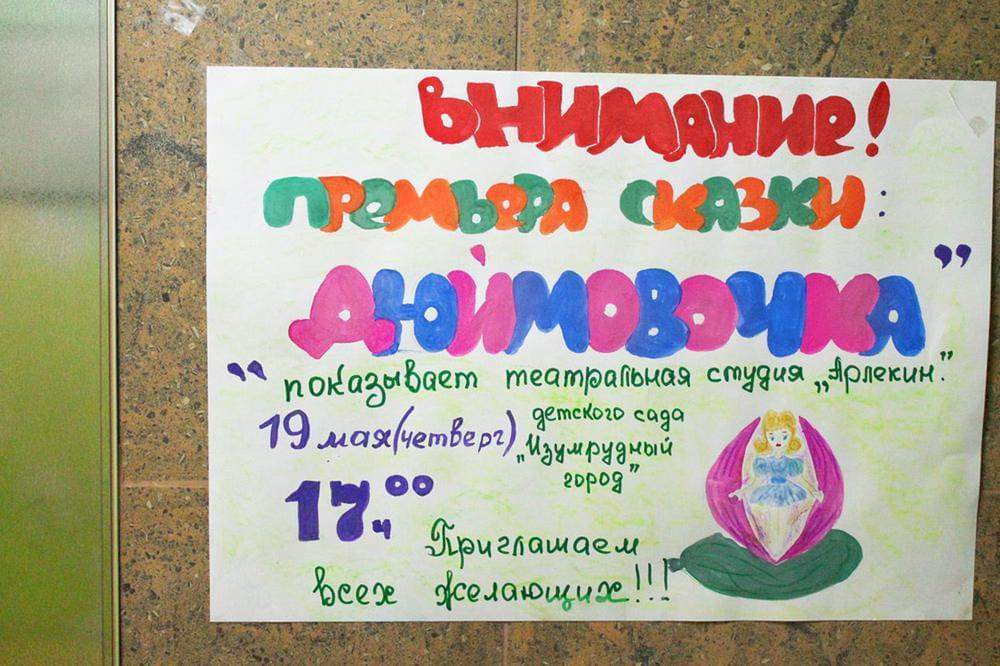 ВНИМАНИЕ!
ПРЕМЬЕРА СКАЗКИ:
„ДЮЙМОВОЧКА”
показывает театральная студия „Арлекин.”
детского сада
„Изумрудный
город”
19 мая (четверг)
17ч00
Приглашаем
всех желающих!!!